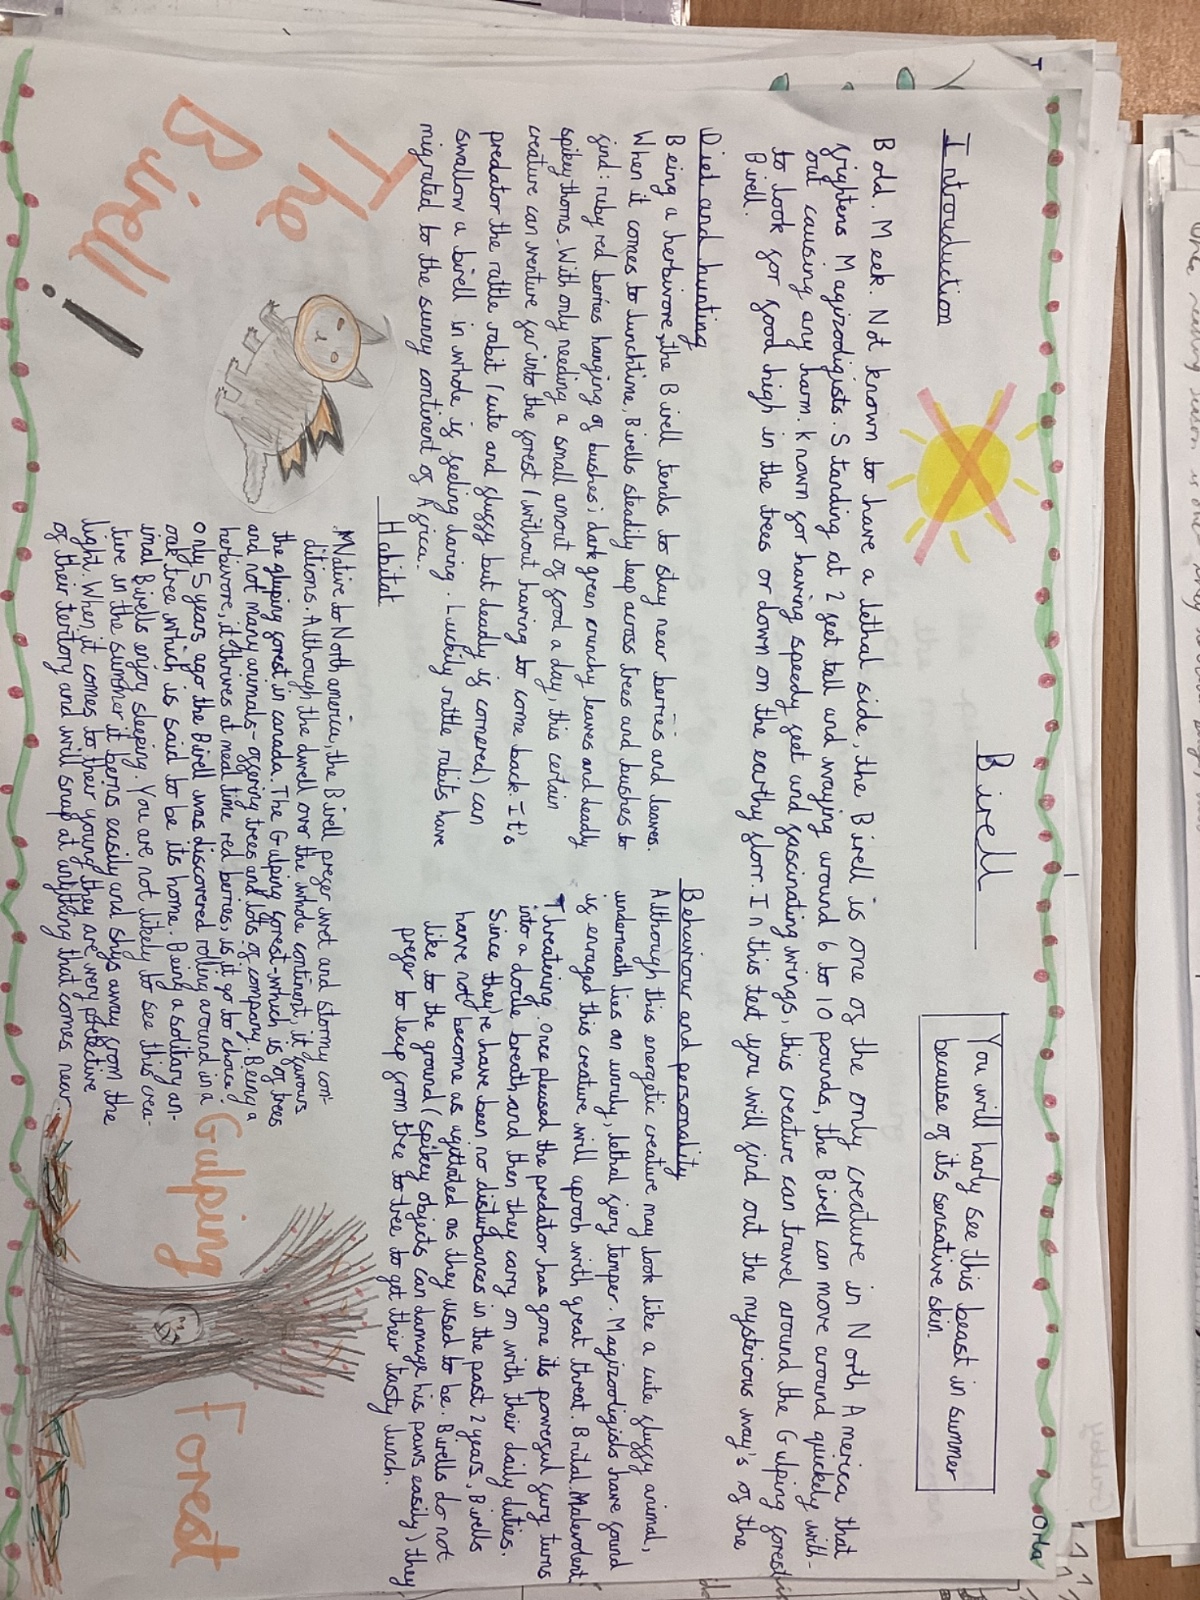 Birell
Orla
You will harly see this beast in summer
because of its sensative skin.
Introuduction
Bold. Meek. Not known to have a lethal side, the Birell is one of the only creature in North America that
frightens Magizoodigists. Standing at 2 feet tall and waying around 6 to 10 pounds, the Birell can move around quickely with-
out causing any harm. Known for having speedy feet and fascinating wings, this creature can travel around the Gulping forest
to look for food high in the trees or down on the earthy florr. In this text you will find out the mysterious way's of the
Birell.
Diet and hunting
Being a herbivore, the Birell tends to stay near berries and leaves.
When it comes to lunchtime, Birells steadily leap across trees and bushes to
find: ruby red berries hanging of bushes; dark green, crunchy leaves and deadly
spikey thorns. With only needing a small amout of food a day, this certain
creature can venture far into the forest (without having to come back. It's
predator the rattle rabit (cute and fluffy but deadly is cornered) can
swallow a birell in whole is feeling daring. Luckily rattle rabits have
migrated to the sunny continent of Africa.
Behaviour and personality
Although this energetic creature may look like a cute fluffy animal,
underneath lies an unruly, lethal fiery temper. Magizoodigists have found
is enraged this creature will uproch with great threat. Brutal. Malevolent.
Threatening. Once pleased the predator has gone its powerful fury turns
into a docile breath and then they carry on with their daily duties.
Since they're have been no disturbances in the past 2 years, Birells
have not become as agitated as they used to be. Birells do not
like to the ground (spikey objects can damage his paws easily) they
prefer to leap from tree to tree to get their tasty lunch.
Habitat
Native to North america, the Birell prefer wet and stormy con-
ditions. Although the dwell over the whole continent, it favours
the gluping forest in canada. The Gulping forest-which is of trees
and not many animals - offering trees and lots of company. Being a
herbivore, it thrives at meal time red berries, is it go to choice!
Only 5 years ago the Birell was discovered rolling around in a
oak tree, which is said to be its home. Being a solitary an-
imal Birells enjoy sleeping. You are not likely to see this crea-
ture in the summer it berns easily and shys away from the
light. When, it comes to their young they are very protective
of their teritory and will snap at anything that comes near.
The
Birell!
Gulping
Forest